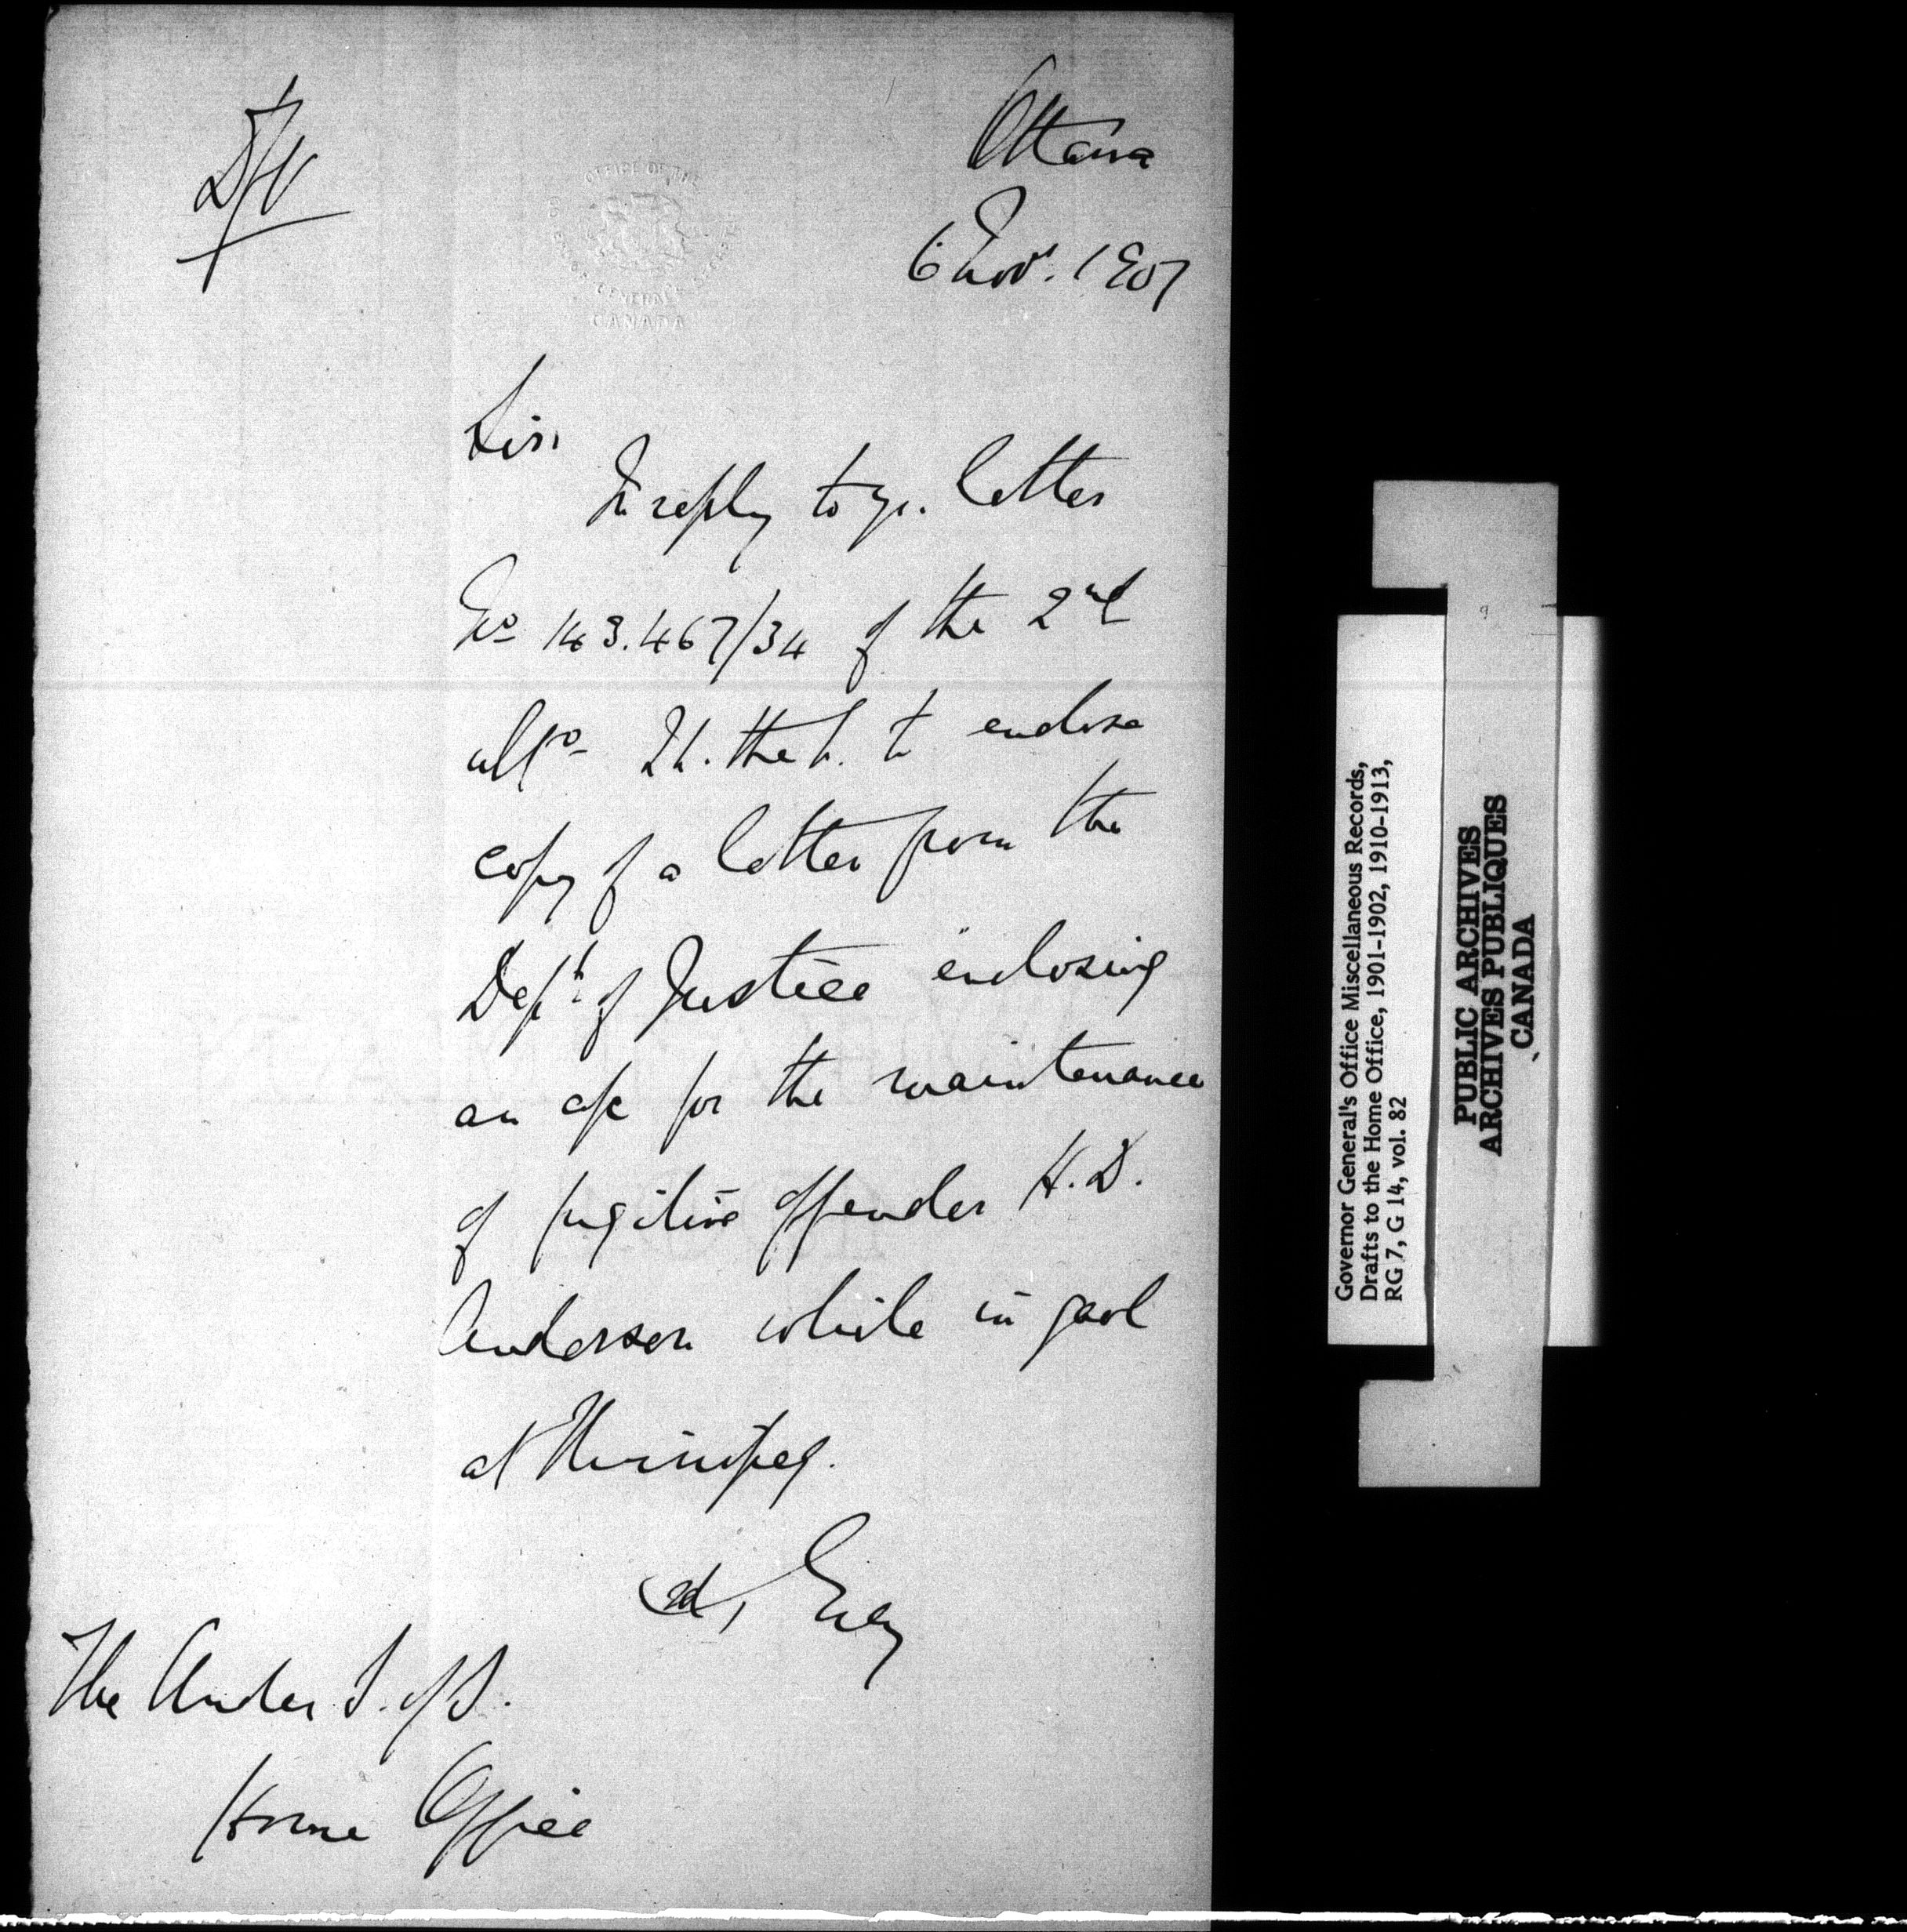 Ottawa
6 Novr. 1907
OFFICE OF THE
GENERAL'S
CANADA
Sir,
In reply to yr. letter
No 143.467/34 of the 2nd
ulto I h. the h. to enclose
copy of a letter from the
Dept. of Justice enclosing
an a/c for the maintenance
of fugitive offender H. D.
Anderson while in gaol
at Winnipeg.
(sd, Grey
The Under S. of S.
Home Office
Governor General's Office Miscellaneous Records,
Drafts to the Home Office, 1901-1902, 1910-1913,
RG 7, G 14, vol. 82
PUBLIC ARCHIVES
ARCHIVES PUBLIQUES
CANADA